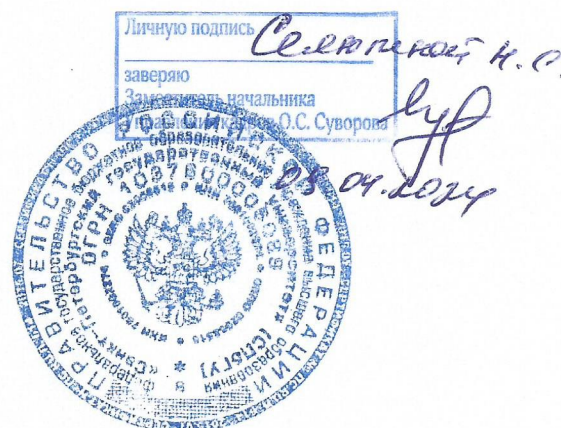 Личную подпись
Н. С.
заверяю
Заместитель начальника
Управления кадров О.С. Суворова
08.04.2024
ПРАВИТЕЛЬСТВО РОССИЙСКОЙ ФЕДЕРАЦИИ
федеральное государственное бюджетное образовательное учреждение высшего образования
«Санкт-Петербургский государственный университет» (СПбГУ)
ОГРН 1037800006089